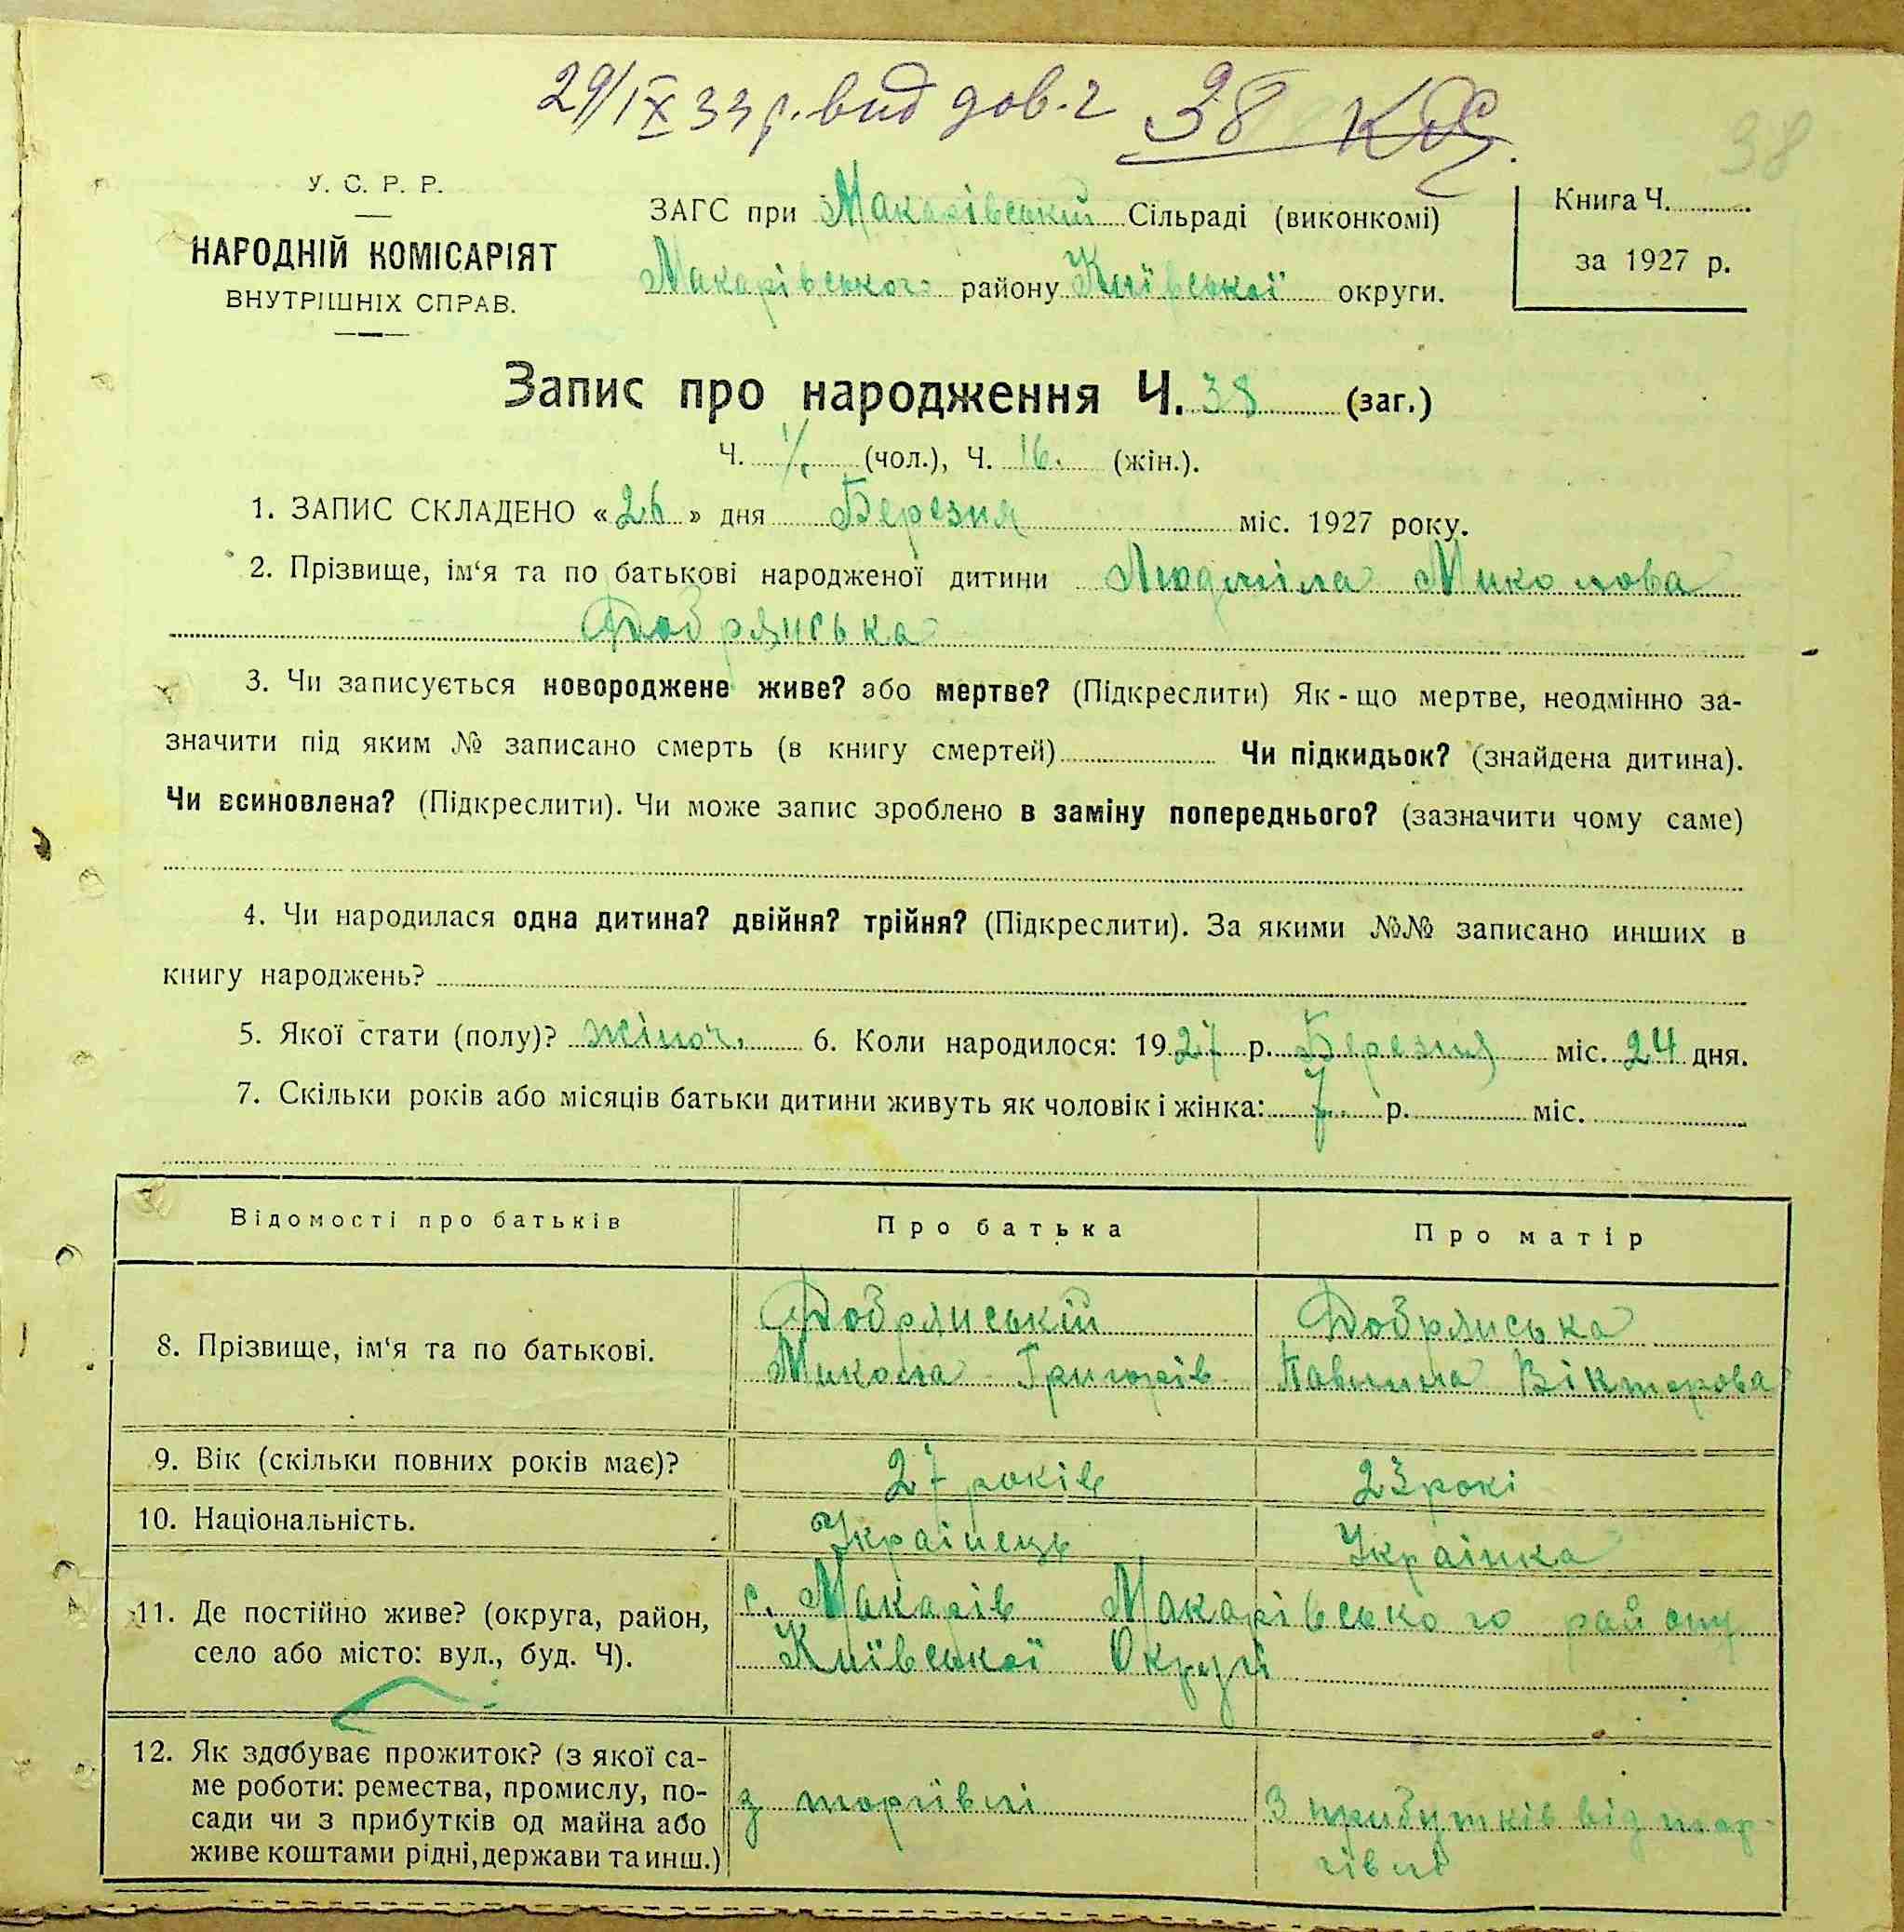 29/IX 33 р. вид дов. ч 38
38
У. С. Р. Р.
НАРОДНІЙ КОМІСАРІЯТ
ВНУТРІШНІХ СПРАВ.
ЗАГС при Макарівський Сільраді (виконкомі)
Макарівського району Київської округи.
Книга Ч.
за 1927 р.
Запис про народження Ч. 38 (заг.)
Ч. (чол.), Ч. 16. (жін.).
1. ЗАПИС СКЛАДЕНО «26» дня Березня міс. 1927 року.
2. Прізвище, ім‘я та по батькові народженої дитини Людміла Миколова
Добрянська
3. Чи записується новороджене живе? або мертве? (Підкреслити) Як-що мертве, неодмінно за-
значити під яким № записано смерть (в книгу смертей) Чи підкидьок? (знайдена дитина).
Чи всиновлена? (Підкреслити). Чи може запис зроблено в заміну попереднього? (зазначити чому саме)
4. Чи народилася одна дитина? двійня? трійня? (Підкреслити). За якими №№ записано инших в
книгу народжень?
5. Якої стати (полу)? жіноч. 6. Коли народилося: 1927 р. Березня міс. 24 дня.
7. Скільки років або місяців батьки дитини живуть як чоловік і жінка: 7 р. міс.
Відомості про батьків Про батька Про матір
8. Прізвище, ім‘я та по батькові.
Добрянській
Микола Григорів
Добрянська
Павлина Вікторова
9. Вік (скільки повних років має)? 27 років 23 рокі
10. Національність. Українець Українка
11. Де постійно живе? (округа, район,
село або місто: вул., буд. Ч).
с. Макарів Макарівського району
Київської Округи
12. Як здобуває прожиток? (з якої са-
ме роботи: ремества, промислу, по-
сади чи з прибутків од майна або
живе коштами рідні, держави та инш.)
з торгівлі
З прибутків від тор-
гівлі